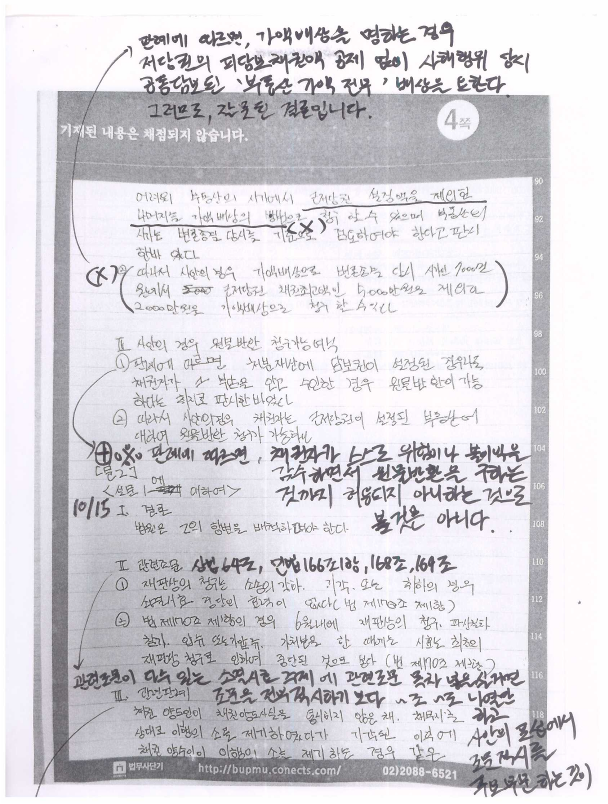 판례에 따르면, 가액배상을 명하는 경우
저당권의 피담보채권액 공제 없이 사해행위 당시
공동담보된 '부동산 가액 전부' 배상을 요한다.
그러므로, 잘못된 결론입니다.
기재된 내용은 채점되지 않습니다.
4쪽
90
여러의 부동산의 사가에서 근저당권 설정액을 제외한
나머지를 가액배상의 방법으로 청구 할 수 있으며 부동산의
(X)
92
시가는 변론종결 당시를 기준으로 하여야 한다고 판시
한바 있다
94
(X)
② 따라서 사안의 경우 가액배상으로 변론종결 당시 시가 7000만
원에서 근저당권 채권최고액인 5,000만원을 제외하고
96
2000만원을 가액배상으로 청구 할 수 있다
98
Ⅲ. 사안의 경우 원물반환 청구가능여부
① 판례에 따르면 처분재산에 담보권이 설정된 경우라도
100
채권자가 그 부담을 안고 수인한 경우 원물반환이 가능
하다는 취지로 판시한 바 있다
102
② 따라서 사안의 경우 채권자는 근저당권이 설정된 부동산에
대하여 원물반환 청구가 가능하다
판례에 따르면, 채권자가 스스로 위험이나 불이익을
감수하면서 원물반환을 구하는
[문2]
<설문 1에 이하여>
106
것까지 허용되지 아니하는 것으로
10/15
Ⅰ. 결론
볼 것은 아니다.
108
법원은 乙의 항변을 배척하여야 한다.
110
Ⅱ. 관련조문 상법 64조, 민법 166조 1항, 168조, 169조
① 재판상의 청구는 소송의 각하, 기각 또는 취하의 경우
112
시효중단의 효력이 없다 (법 제170조 제1항)
② 법 제170조 제1항의 경우 6월내에 재판상의 청구, 파산절차
114
참가, 압류 또는 가압류, 가처분을 한 때에는 시효는 최초의
재판상 청구로 인하여 중단된 것으로 본다 (법 제170조 제2항)
116
관련조문이 다수 있는 소멸시효 주제에 관련조문 목차 넣으실거면
조문을 전부 적시하기보다 ~조 ~조 나열만
Ⅲ. 관련판례
하고
채권 양도인이 채권양도사실을 통지하지 않은 채, 채무자를
118
사안의 포섭에서
상대로 이행의 소를 제기하였다가 기각된 이후에
조문 적시를
채권 양수인이 이행의 소를 제기하는 경우 같은
주로 부분 하는 것이
법무사단기
http://bupmu.conects.com/
02)2088-6521